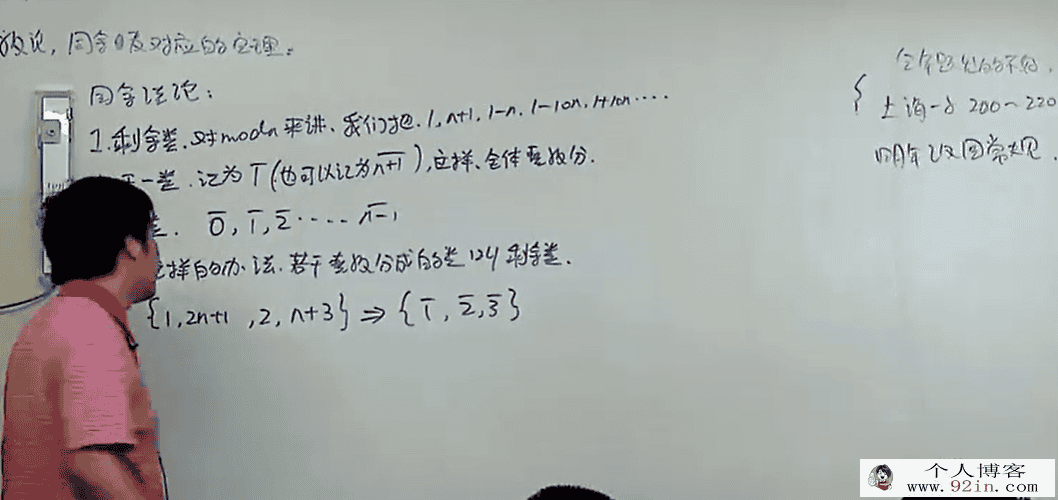 同余及对应的定理。
同余理论:
1.剩余类.对modn来讲.我们把.1,n+1,1-n,1-10n,1+10n....
一类.记为1̅(也可以记为n+1̅),这样、全体整数分.
类. 0̅,1̅,2̅.....n-1̅
这样的办法.若干整数分成的类叫剩余类.
{1,2n+1,2,n+3}⇒{1̅,2̅,3̅}
200~220
明年
个人博客
www.92in.com